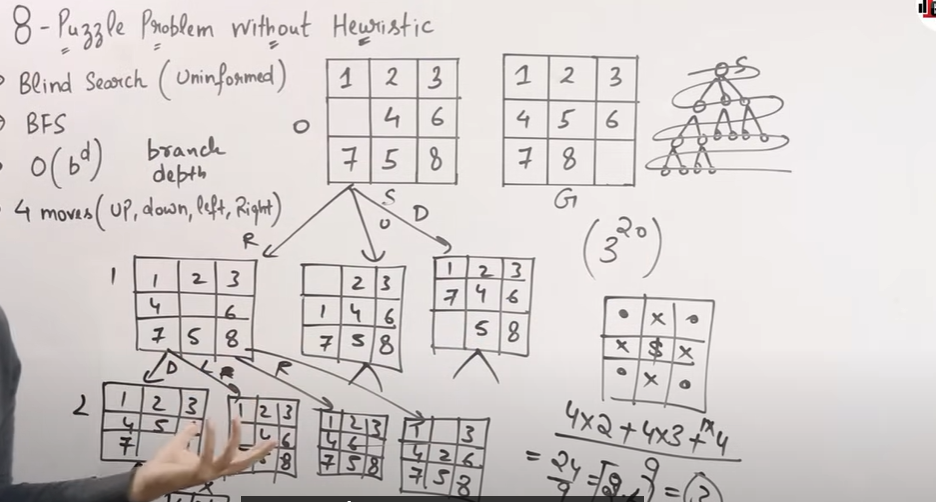 8-Puzzle Problem without Heuristic
Blind Search (Uninformed)
BFS
O(b^d) branch
depth
4 moves (UP, down, left, Right)
O
1 2 3
4 6
7 5 8
S
1 2 3
4 5 6
7 8
G
S
R
U
D
1
1 2 3
4 6
7 5 8
2 3
1 4 6
7 5 8
1 2 3
7 4 6
5 8
D
L
R
2
1 2 3
4 5
7
1 2 3
4 6
5 8
1 2 3
4 6
7 5 8
1 3
4 2 6
7 5 8
(3^20)
• x •
x $ x
• x •
4x2 + 4x3 + 1x4
9
= 24/9 = = (3)